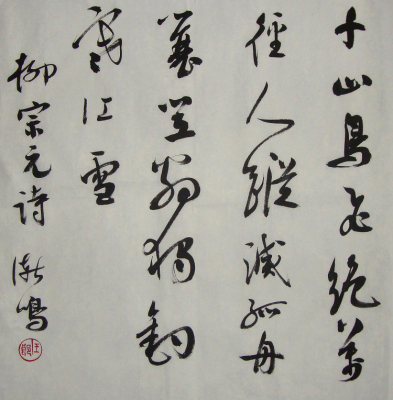 千山鳥飛絶萬
徑人蹤滅孤舟
蓑笠翁獨釣
寒江雪
柳宗元詩 鳴